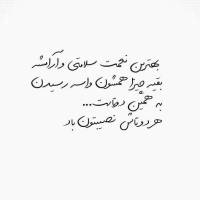 بهترین نعمت سلامتی و آرامشه
بقیه چیزا همشون واسه رسیدن
به همین دوتاست...
هر دوتاش نصیبتون باد